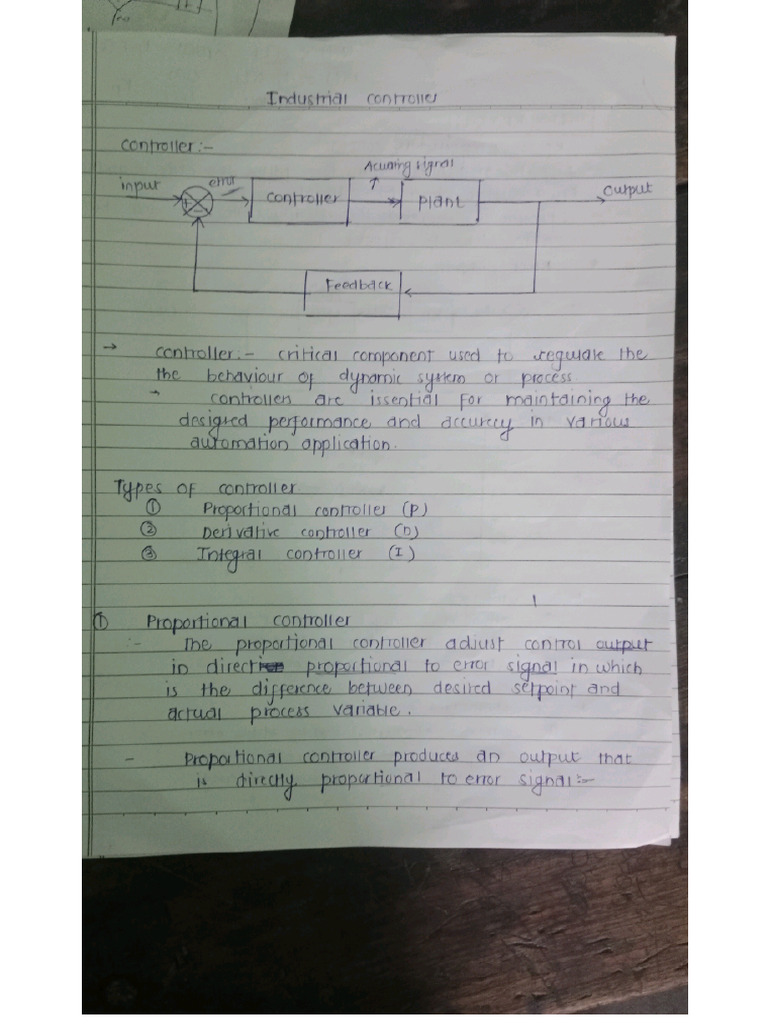 Industrial controller
controller:-
Acuming signal
input
error
controller
plant
output
+
-
Feedback
→ controller:- critical component used to regulate the
the behaviour of dynamic system or process.
→ controllers are issential for maintaining the
desigred performance and accurecy in various
automation application.
Types of controller
① Proportional controller (P)
② Derivative controller (D)
③ Integral controller (I)
① Proportional controller
:- The proportional controller adjust control output
in direct proportional to error signal in which
is the difference between desired setpoint and
actual process variable.
- Proportional controller produces an output that
is directly proportional to error signal:-